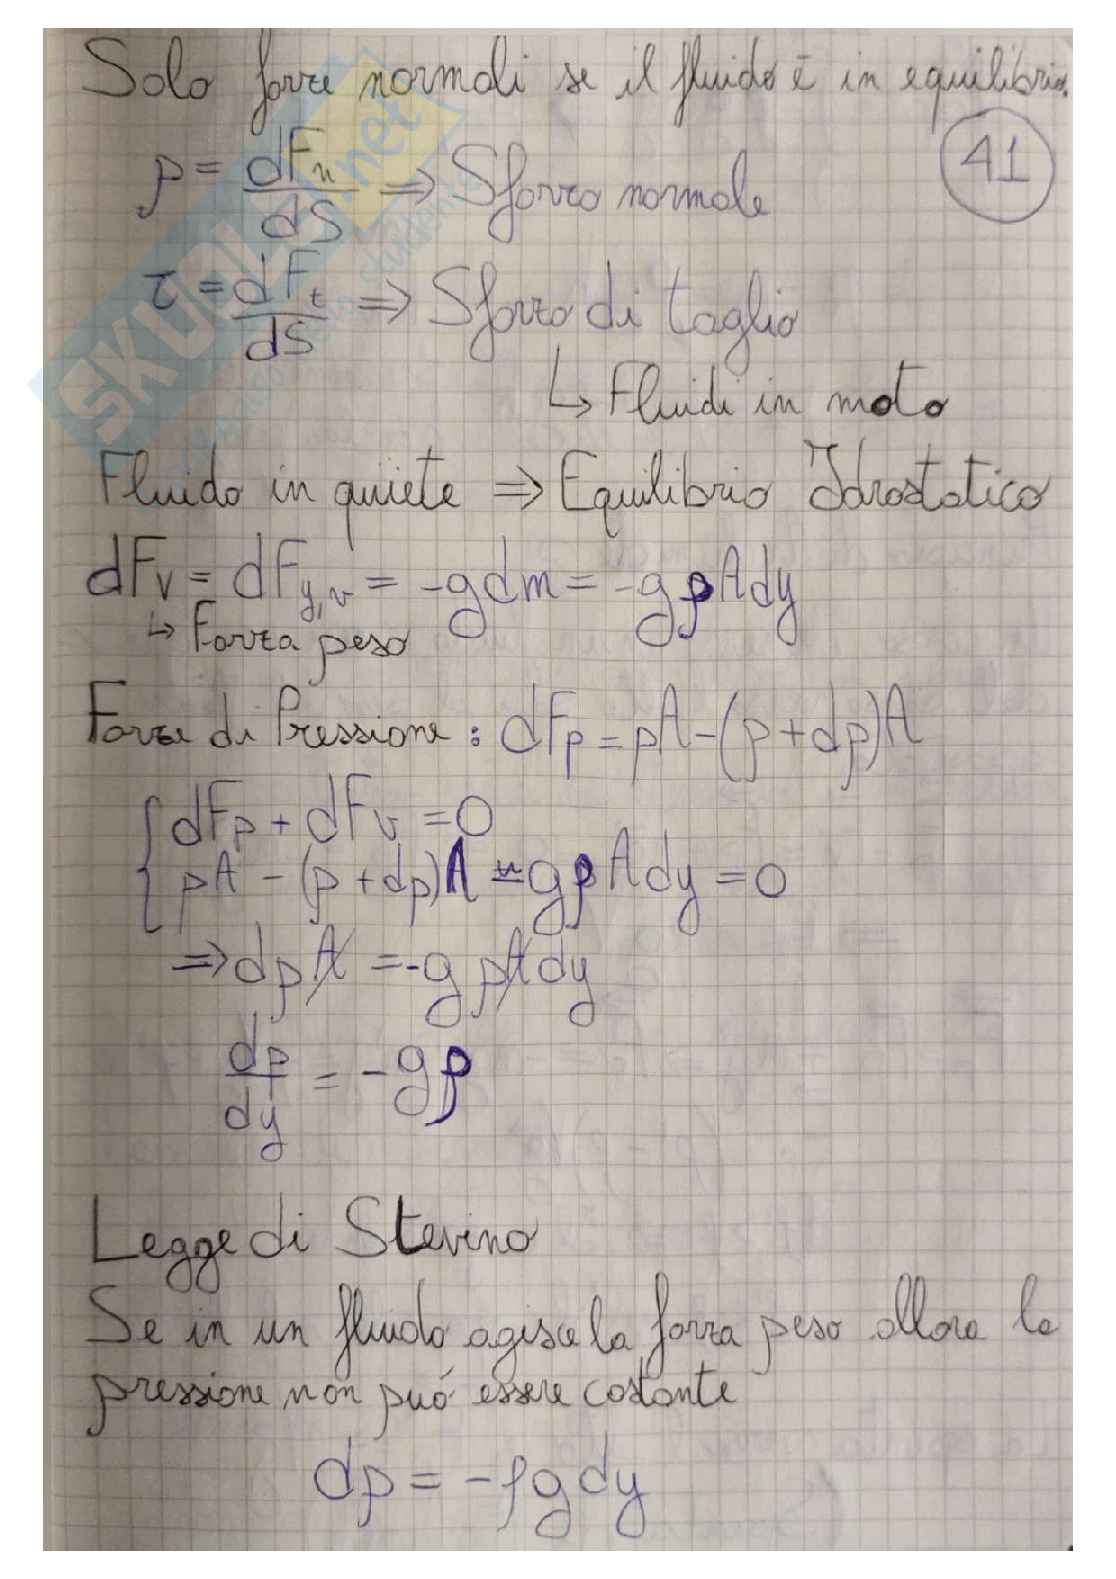 Solo forze normali se il fluido è in equilibrio.
41
p = dFn/dS => Sforzo normale
τ = dFt/dS => Sforzo di taglio
↳ Fluidi in moto
Fluido in quiete => Equilibrio Idrostatico
dFv = dFy,v = -gdm = -gρAdy
↳ Forza peso
Forze di Pressione : dFp = pA-(p+dp)A
{ dFp + dFv = 0
pA - (p+dp)A - gρAdy = 0
=> dpA = -gρAdy
dp/dy = -gρ
Legge di Stevino
Se in un fluido agisce la forza peso allora la
pressione non puó essere costante
dp = -ρgdy
SKUOLA.net